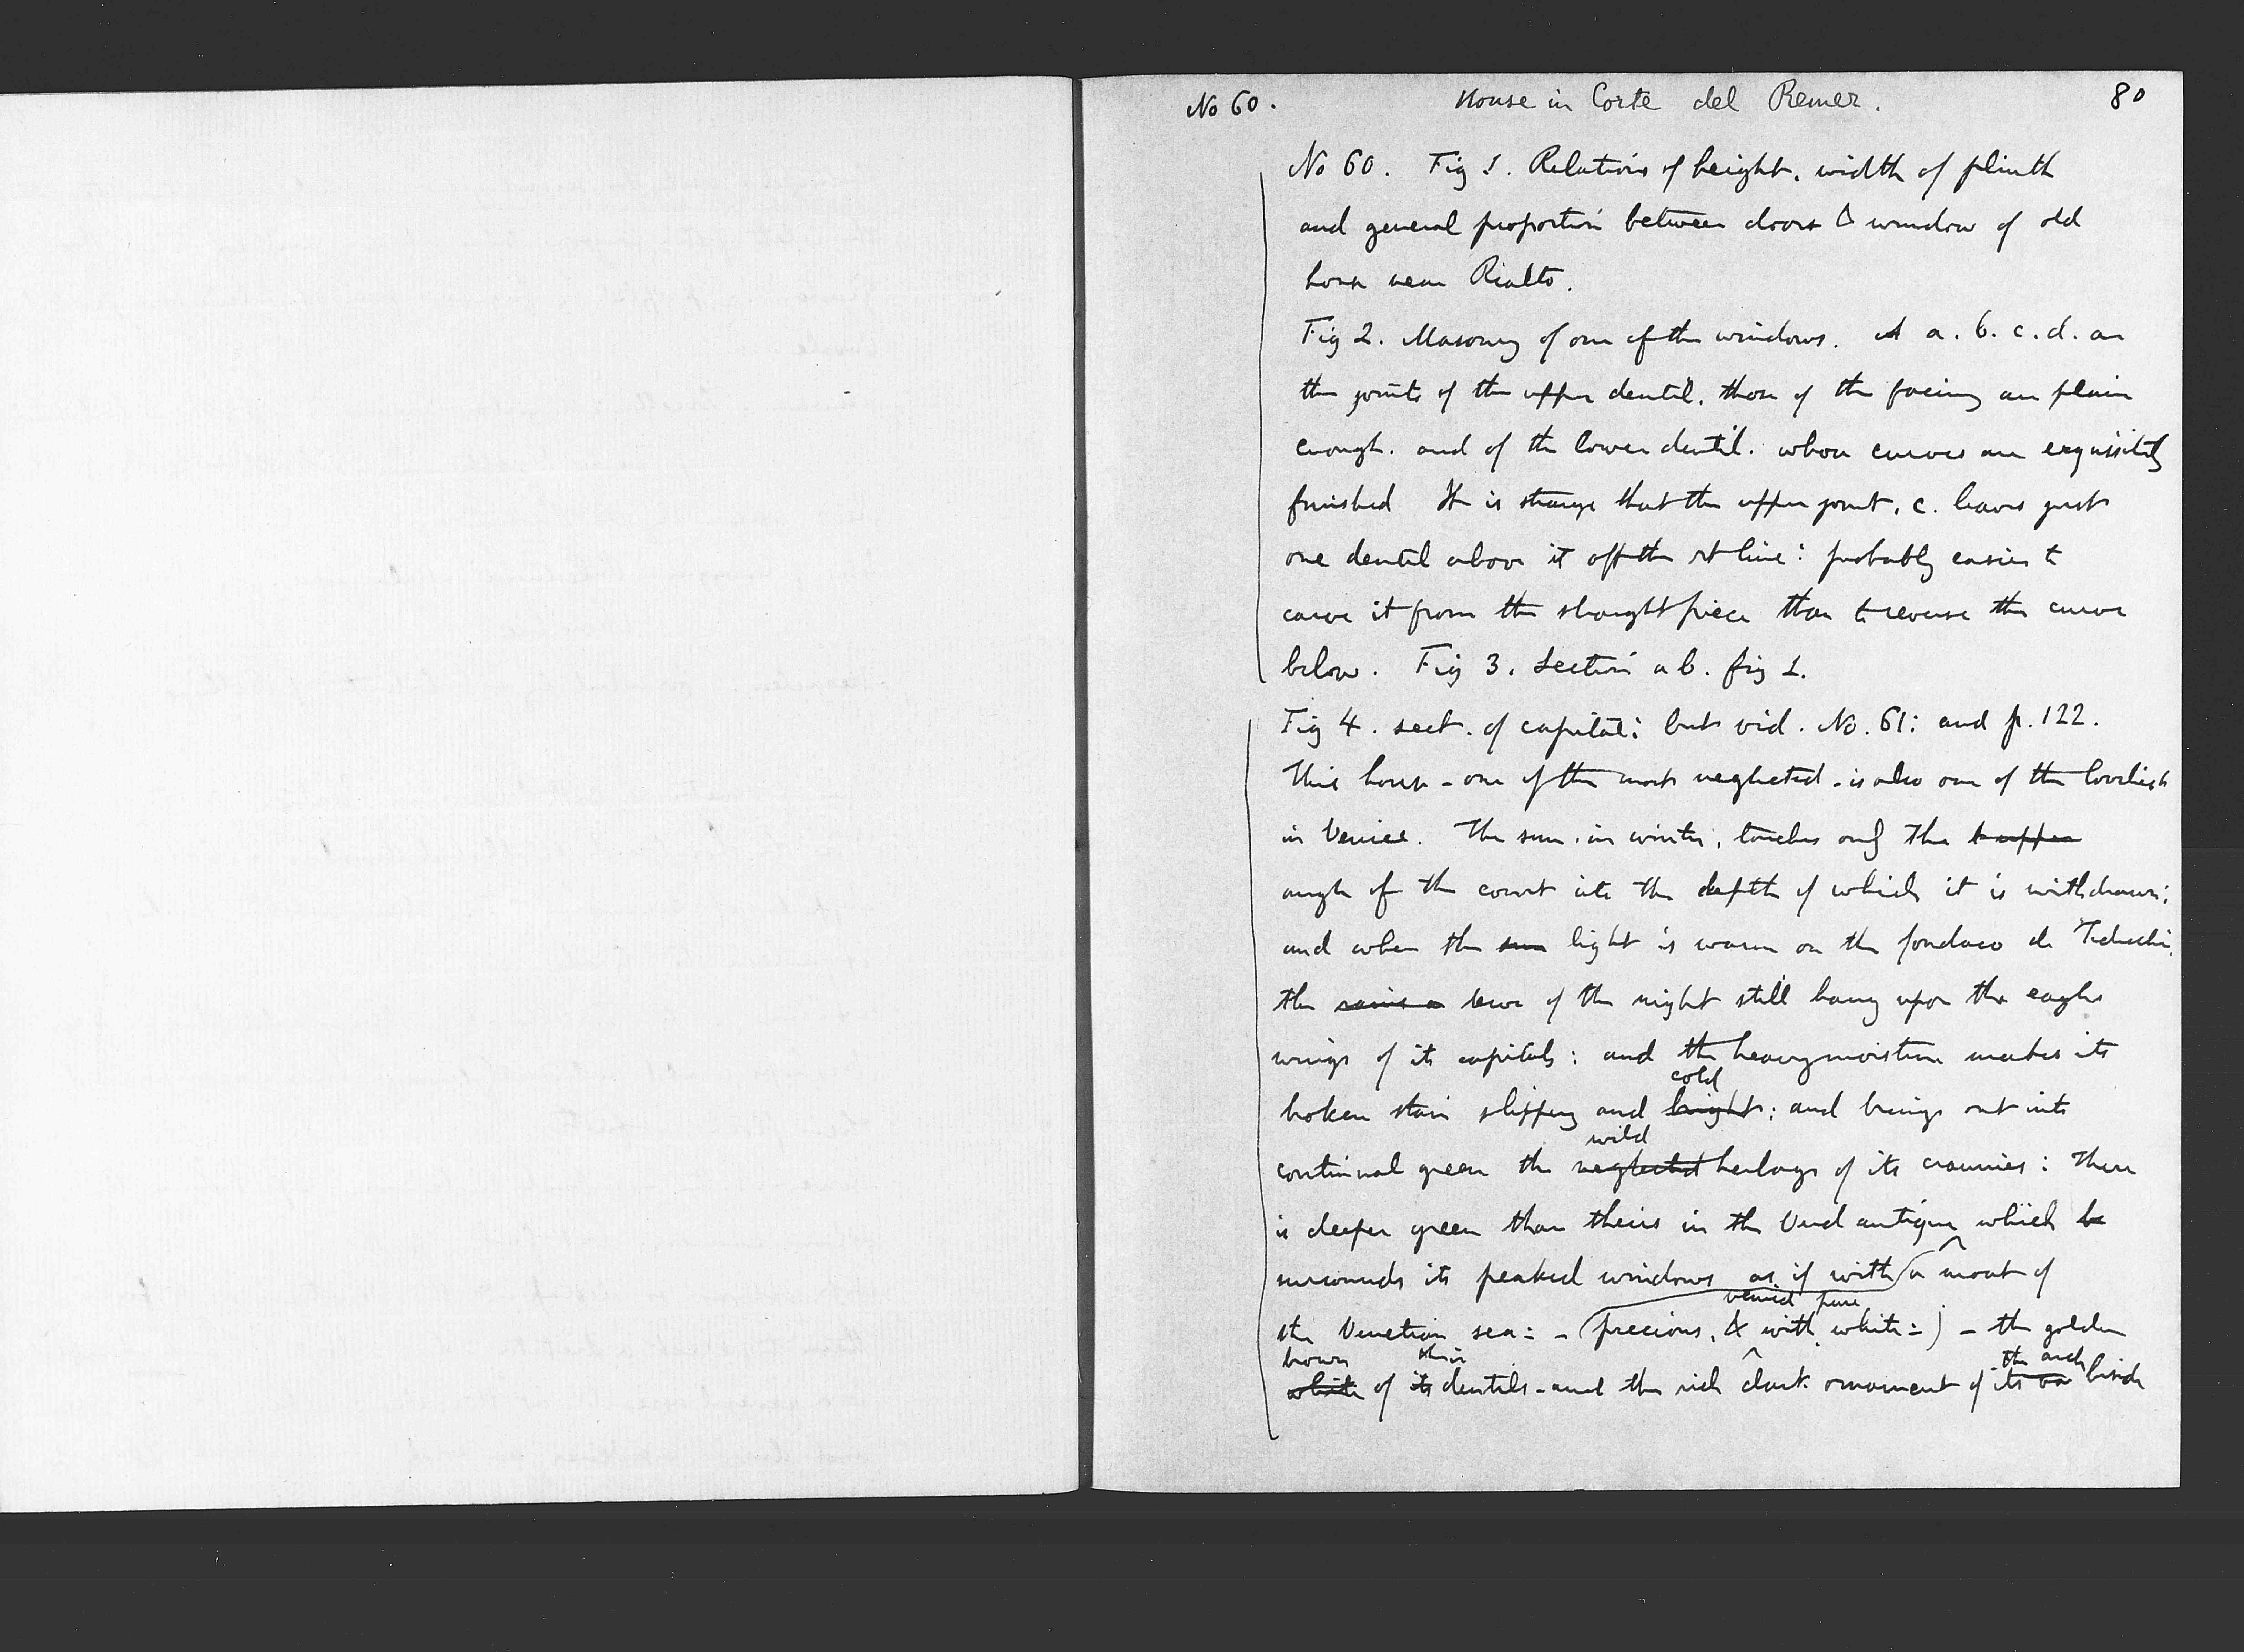 No 60. House in Corte del Remer. 80
No 60. Fig 1. Relations of height, width of plinth
and general proportion between doors & window of old
house near Rialto.
Fig 2. Masonry of one of the windows. At a. b. c. d. are
the joints of the upper dentil. those of the facing are plain
enough. and of the lower dentil. whose curves are exquisitely
finished It is strange that the upper joint, c. leaves just
one dentil above it off the rt line: probably easier to
carve it from the straight piece than to reverse the curve
below. Fig 3. Section a b. fig 1.
Fig 4. sect. of capital: but vid. No. 61: and p. 122.
This house - one of the most neglected - is also one of the loveliest
in Venice. The sun, in winter, touches only the t upper
angle of the court into the depth of which it is withdrawn:
and when the sun light is warm on the fondaco de Tedeschi,
the dew of the night still hang upon the eagles
wings of its capitals: and the heavy moisture makes its
cold
broken stair slippery and bright: and brings out into
wild
continual green the neglected herbage of its crannies: There
is deeper green than theirs in the Verd antique which be
surrounds its peaked windows as if with a moat of
veined pure
the Venetian sea: - (precious, & with white:) - the golden
brown their the arch
white of its dentils - and the rich dark ornament of its va birds